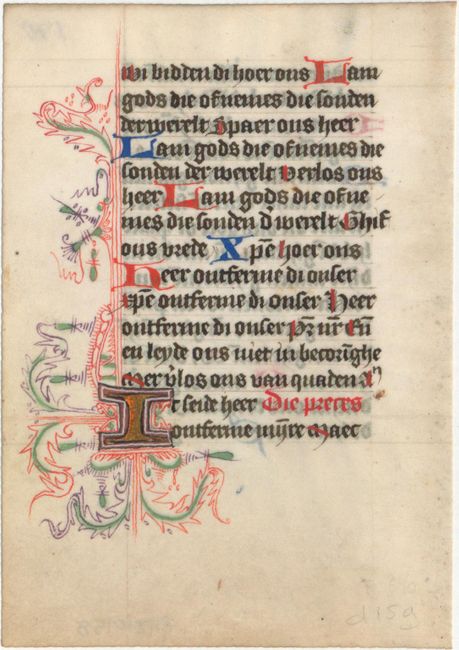 wi bidden di hoer ons Lam
gods die of nemes die sonden
der werelt Spaer ons heer
Lam gods die of nemes die
sonden der werelt verlos ons
heer Lam gods die of ne
mes die sonden d werelt Ghif
ons vrede Xpē hoer ons
Heer ontferme di onser
xpē ontferme di onser Heer
ontferme di onser Pr̄ nr̄ Eñ
en leyde ons niet in becorīghe
Mer v̓los ons van quaden
Ic seide heer Die preces
ontferme mijnre Maec
disg